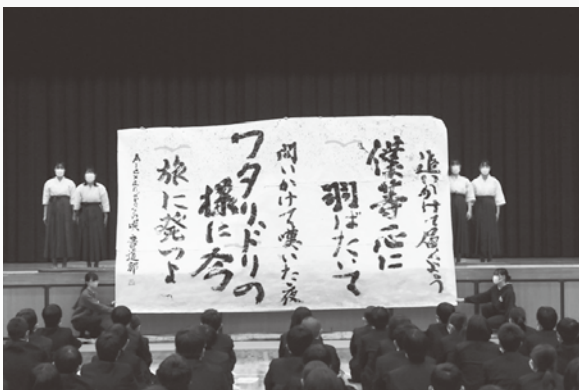 追いかけて届くよう
僕等一心に
羽ばたいて
問いかけて嘆いた夜
ワタリドリの
様に今
旅に発つよ
書道部